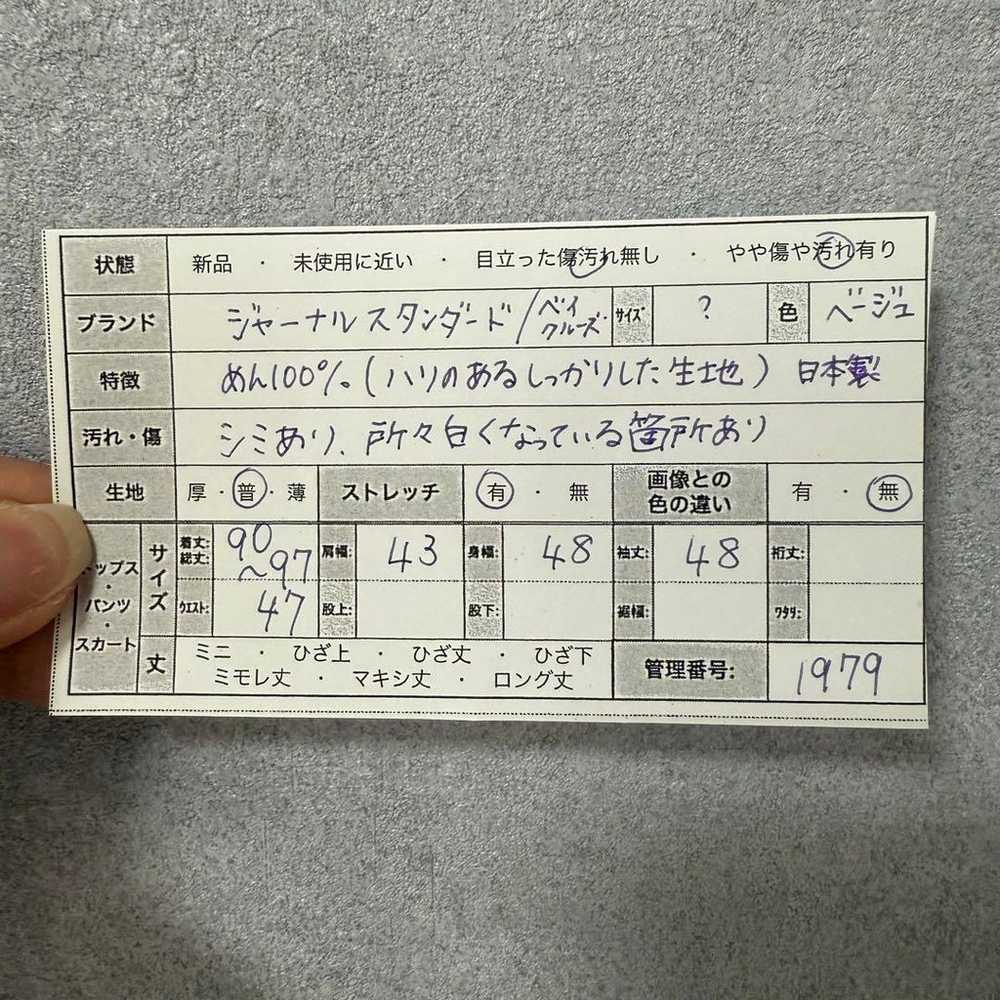 状態 新品 ・ 未使用に近い ・ 目立った傷汚れ無し ・ やや傷や汚れ有り
ブランド ジャーナルスタンダード/ベイクルーズ サイズ ? 色 ベージュ
特徴 めん100%(ハリのあるしっかりした生地) 日本製
汚れ・傷 シミあり、所々白くなっている箇所あり
生地 厚・普・薄 ストレッチ 有 ・ 無 画像との色の違い 有 ・ 無
トップス・パンツ・スカート サイズ 着丈:総丈: 90~97 肩幅: 43 身幅: 48 袖丈: 48 裄丈:
ウエスト: 47 股上: 股下: 裾幅: ワタリ:
丈 ミニ ・ ひざ上 ・ ひざ丈 ・ ひざ下
ミモレ丈 ・ マキシ丈 ・ ロング丈 管理番号: 1979